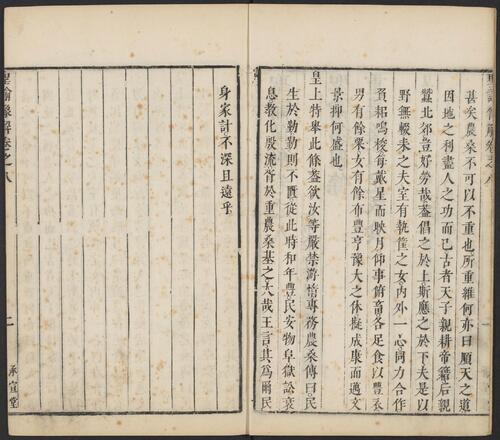 甚矣農桑不可以不重也所重維何亦曰順天之道
因地之利盡人之功而已古者天子親耕帝籍后親
蠶北郊豈好勞哉葢倡之於上斯應之於下夫是以
野無輟耒之夫室有執筐之女內外一心同力合作
負耜鳴梭每戴星而映月仰事俯畜各足食以豐衣
男有餘粟女有餘布豊亨豫大之休擬成康而邁文
景抑何盛也
皇上特舉此條葢欲汝等嚴禁游惰專務農桑傳曰民
生於勤勤則不匱從此時和年豊民安物阜獄訟衰
息教化殷流胥於重農桑基之大哉王言其爲爾民
身家計不深且遠乎
聖諭像解卷之八
二
承宣堂